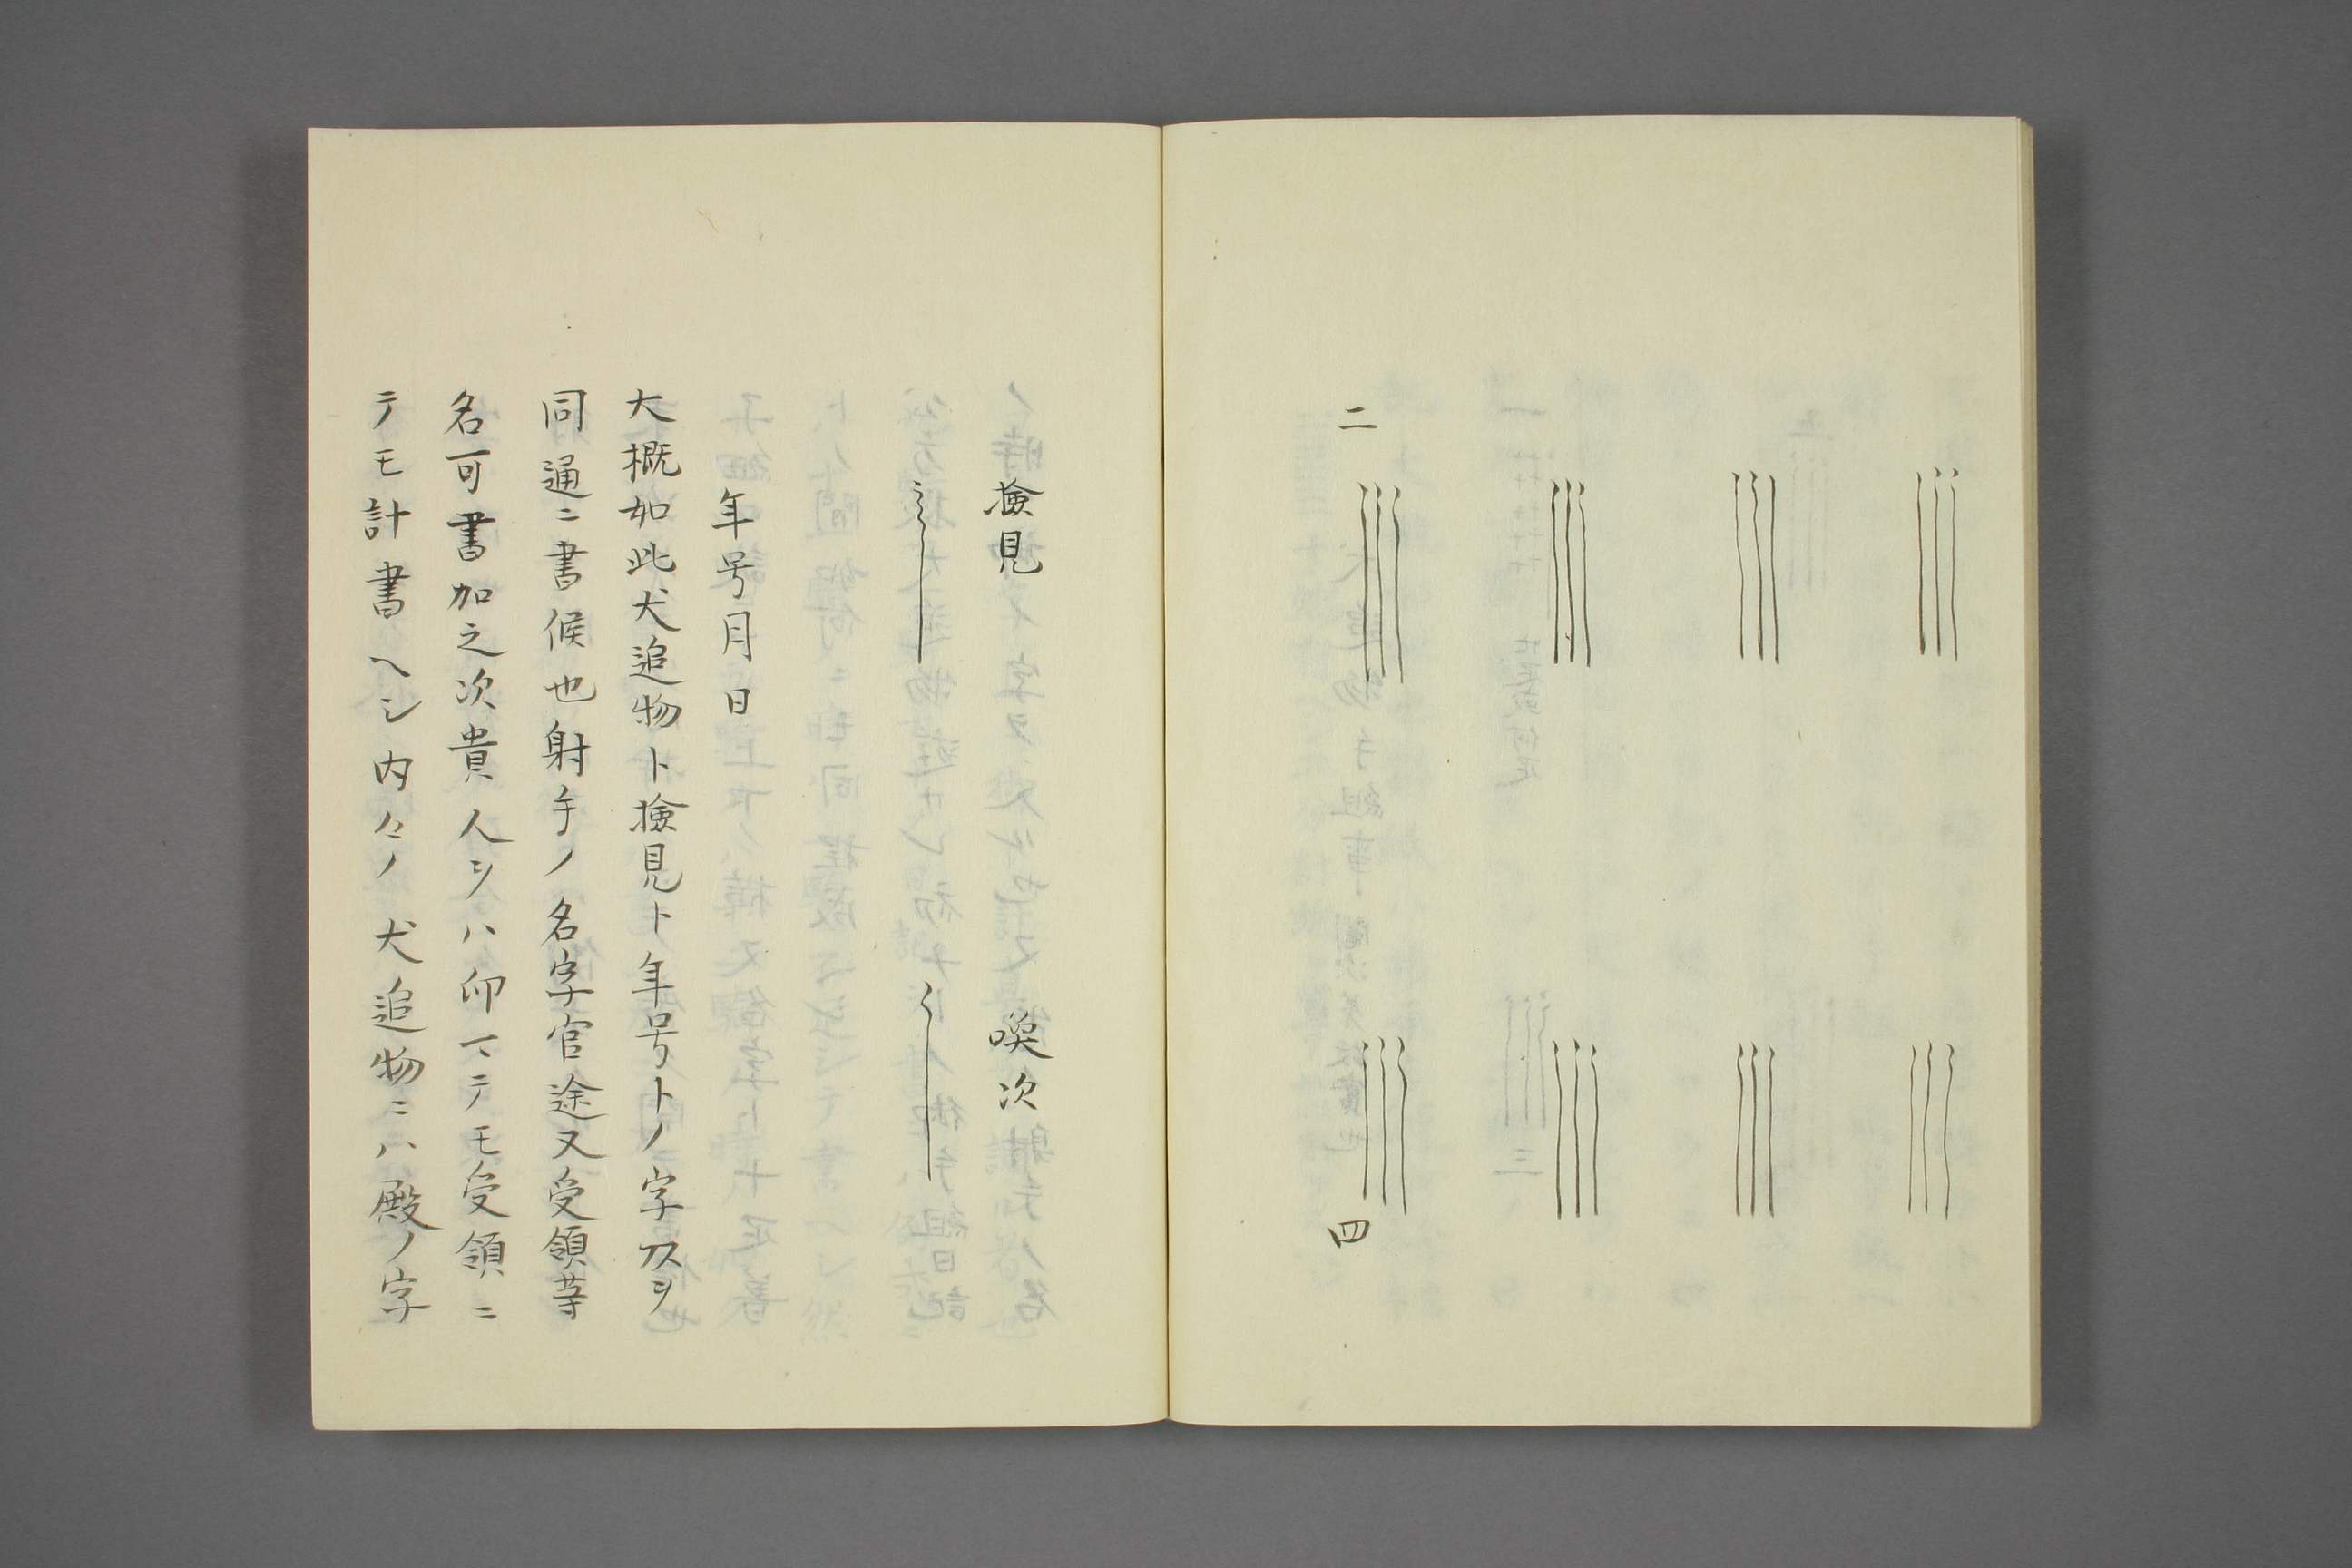 二
四
検見　喚次
年号月日
大概如此犬追物ト検見ト年号トノ字カスヲ
同通ニ書候也射手ノ名字官途又受領等
名可書加之次貴人ヲハ仰マテモ受領ニ
テモ計書ヘシ内々ノ犬追物ニハ殿ノ字